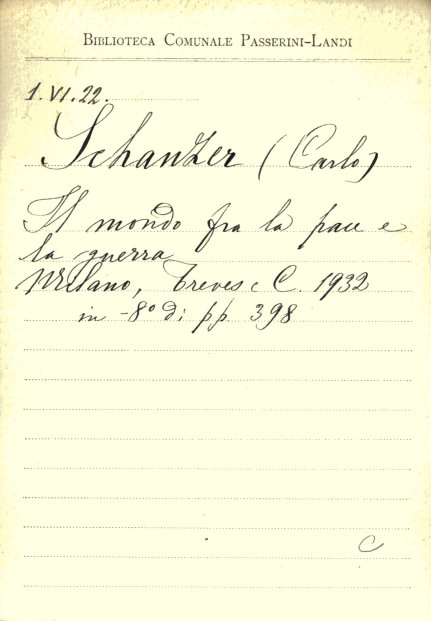 BIBLIOTECA COMUNALE PASSERINI-LANDI
1.VI.22.
Schanzer (Carlo)
Il mondo fra la pace e
la guerra
Milano, Treves e C. 1932
in -8° di pp. 398
C